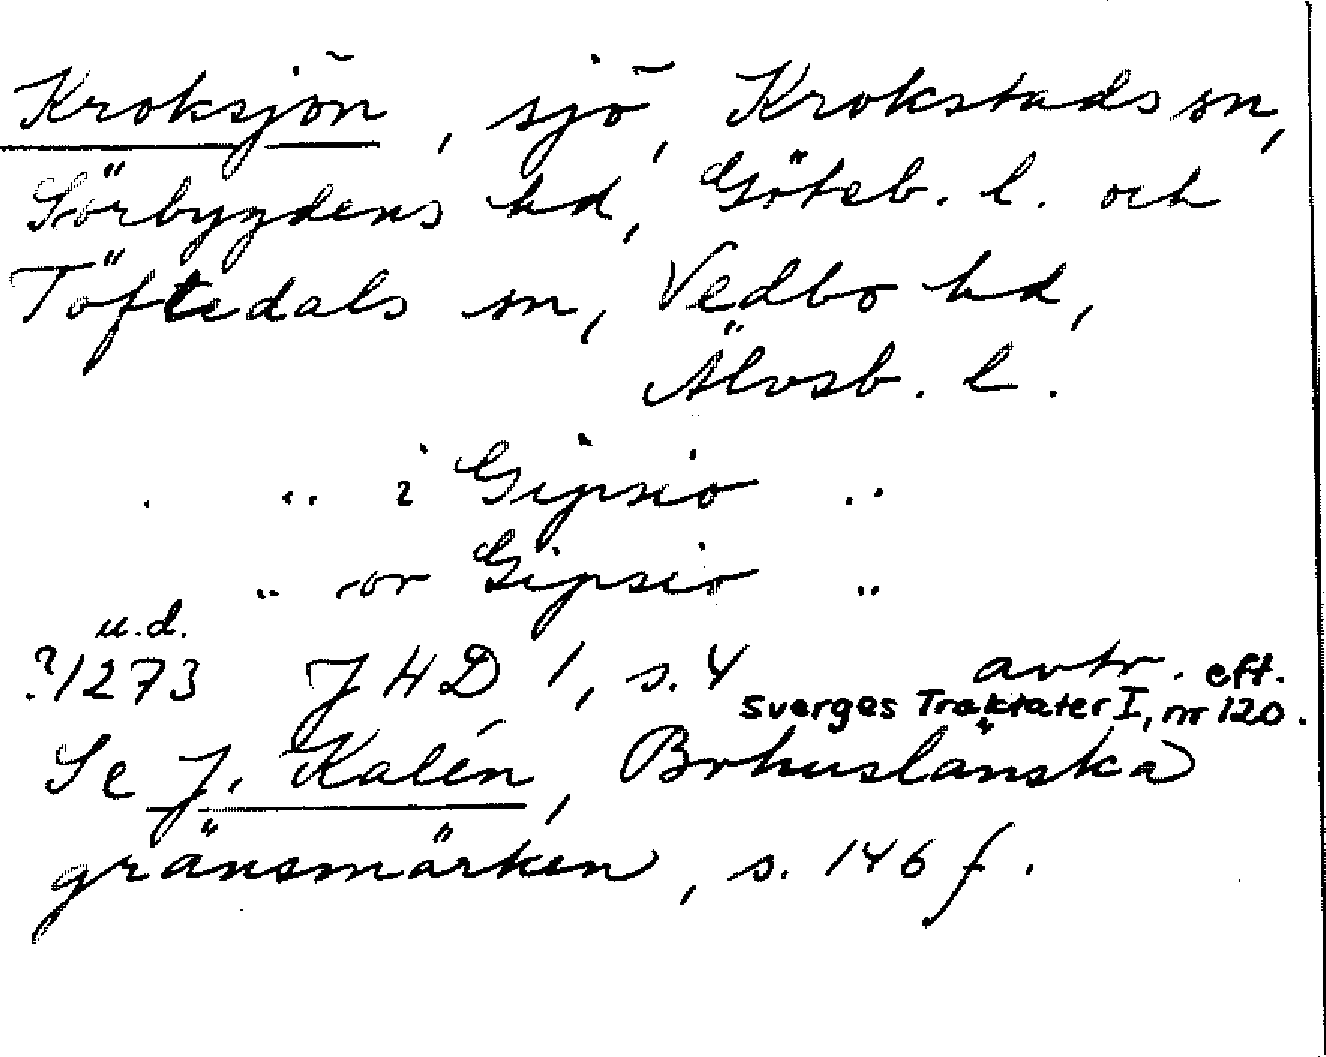 Kroksjön, sjö, Krokstads sn,
Sörbygdens hd, Göteb. l. och
Töftedals sn, Vedbo hd,
Älvsb. l.
. .. i Gipsio ..
.. or Gipsio ..
u.d.
?1273 JHD 1, s. 4 avtr. eft.
Sverges Traktater I, nr 120.
Se J. Kalén, Bohuslänska
gränsmärken, s. 146 f.